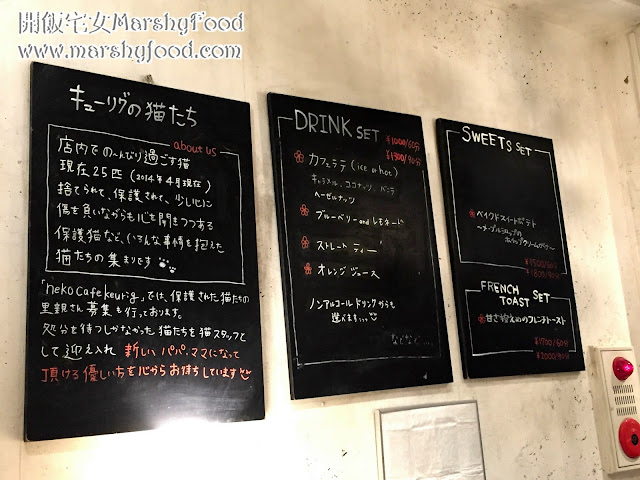 開飯宅女MarshyFood
www.marshyfood.com
キューリグの猫たち
about us
店内での〜んびり過ごす猫
現在25匹(2014年4月現在)
捨てられて、保護されて、少し心に
傷を負いながらも心を開きつつある
保護猫など、いろんな事情を抱えた
猫たちの集まりです
「neko cafe keurig」では、保護された猫たちの
里親さん募集も行っております。
処分を待つしかなかった猫たちを猫スタッフと
して迎え入れ 新しいパパ、ママになって
頂ける優しい方を心からお待ちしています
DRINK SET
¥1000/60分
¥1300/90分
カフェラテ (ice or hot)
キャラメル、ココナッツ、バニラ
ヘーゼルナッツ
ブルーベリー and レモネード
ストレート ティー
オレンジ ジュース
ノンアルコール ドリンクからも
選べます...
などなど...
SWEETS SET
ベイクドスイートポテト
〜メープルシロップの
ホイップクリーム
¥1500/60分
¥1800/90分
FRENCH TOAST SET
甘さ控えめのフレンチトースト
¥1700/60分
¥2000/90分